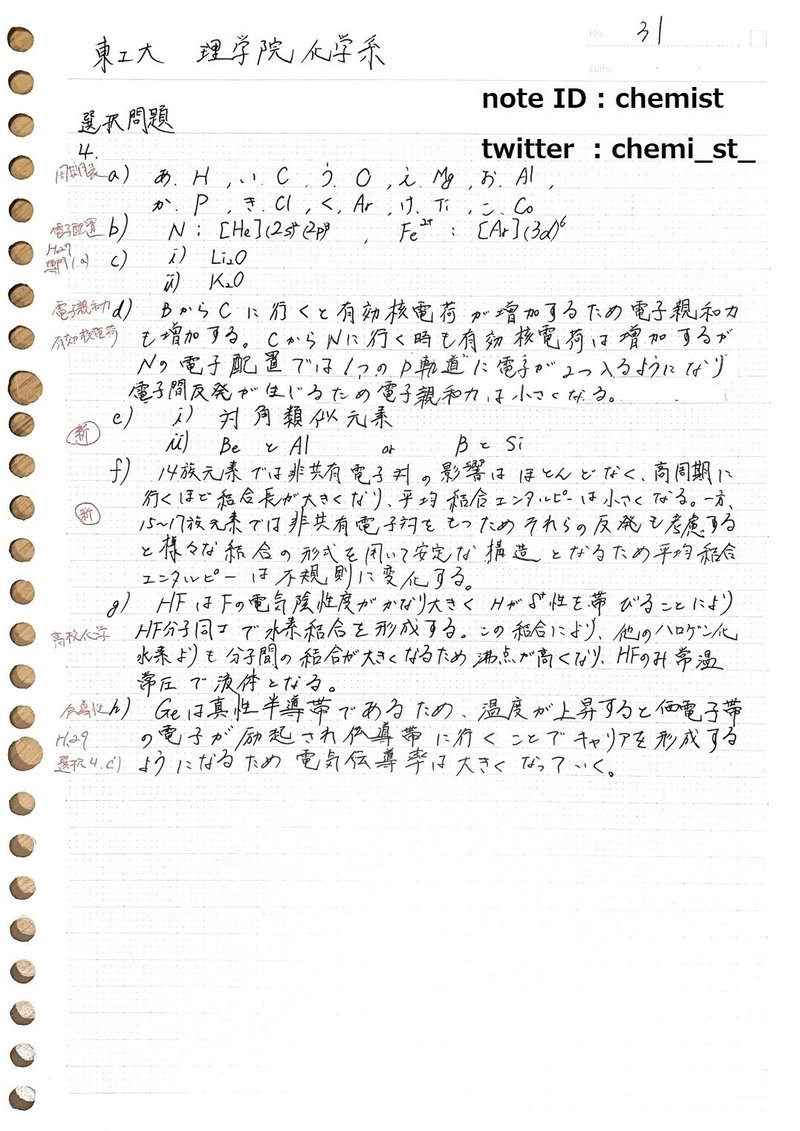 No. 31
Date
東工大 理学院 化学系
note ID : chemist
twitter : chemi_st_
選択問題
4.
周期表 a) あ. H , い. C , う. O , え. Mg , お. Al ,
か. P , き. Cl , く. Ar , け. Ti , こ. Co
電子配置 b) N : [He](2s)²(2p)³ , Fe²⁺ : [Ar](3d)⁶
H27
専門1.a) c) i) Li₂O
ii) K₂O
電子親和力 d) BからCに行くと有効核電荷が増加するため電子親和力
有効核電荷 も増加する。CからNに行く時も有効核電荷は増加するが
Nの電子配置では1つのP軌道に電子が2つ入るようになり
電子間反発が生じるため電子親和力は小さくなる。
e) i) 対角類似元素
新
ii) Be と Al or B と Si
f) 14族元素では非共有電子対の影響はほとんどなく、高周期に
行くほど結合長が大きくなり、平均結合エンタルピーは小さくなる。一方、
新
15~17族元素では非共有電子対をもつためそれらの反発も考慮する
と様々な結合の形式を用いて安定な構造となるため平均結合
エンタルピーは不規則に変化する。
g) HFはFの電気陰性度がかなり大きくHがδ⁺性を帯びることにより
高校化学 HF分子同士で水素結合を形成する。この結合により、他のハロゲン化
水素よりも分子間の結合が大きくなるため沸点が高くなり、HFのみ常温
常圧で液体となる。
伝導性 h) Geは真性半導帯であるため、温度が上昇すると価電子帯
H29 の電子が励起され伝導帯に行くことでキャリアを形成する
選択4.c) ようになるため電気伝導率は大きくなっていく。